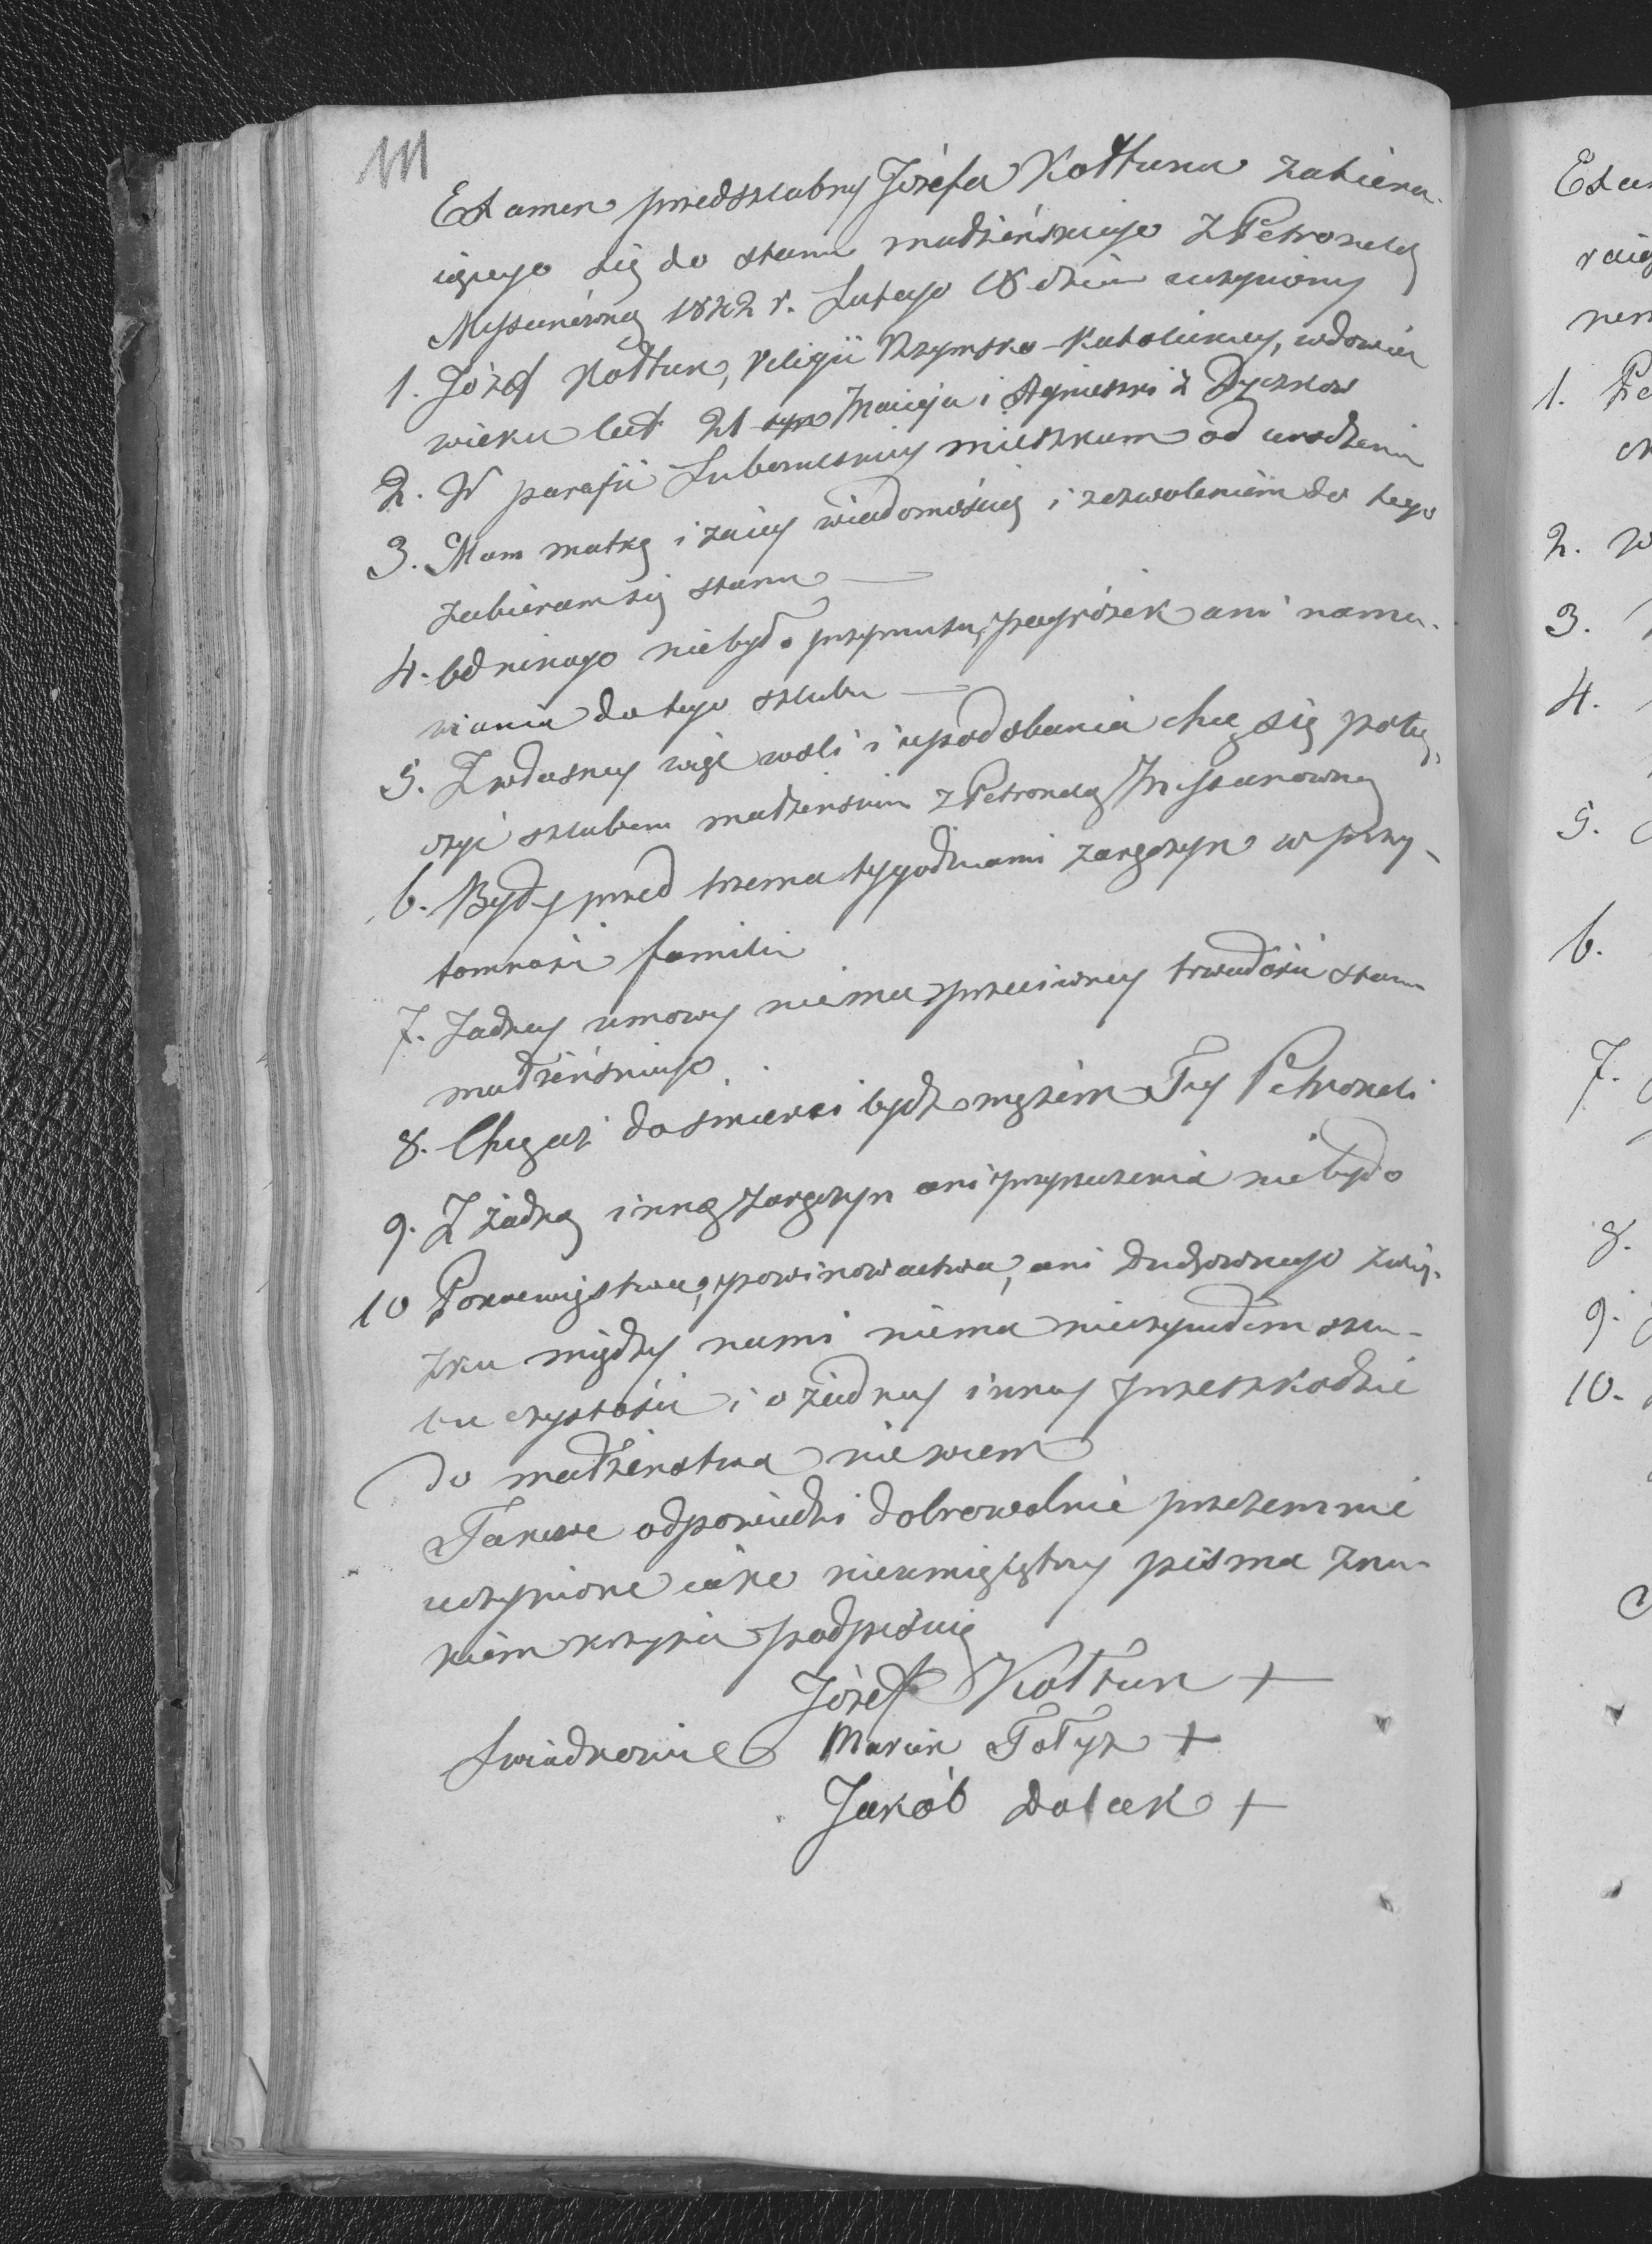 111
Examen przedszlubny Józefa Kołtuna zabiera-
iącego się do stanu małżeńskiego z Petronelą
Myszanówną 1822 r. Lutego 18 dnia uczyniony
1. Józef Kołtun, Religii Rzymsko-Katolickiey, wdowiec
wieku lat 21 syn Macieja i Agnieszki z Dyczków
2. W parafii mieszkam od urodzenia
3. Mam matkę i za iey wiadomością i zezwoleniem do tego
zabieram się stanu
4. Od nikogo niebyło przymusu, pogróżek ani nama-
wiania do tego szlubu
5. Z własney więc woli i upodobania chcę się połą-
czyć szlubem małżeńskim z Petronelą Myszanowną
6. Były przed trzema tygodniami zaręczyn w przy-
tomności familii
7. Żadney umowy niema przeciwney trwałości stanu
małżeńskiego
8. Chcę aż do śmierci bydź mężem Tey Petroneli
9. Z żadną inną zaręczyn ani przyrzeczenia niebyło
10 Pokrewięstwa, powinowactwa, ani duchownego zwią-
zku między nami niema nieczyniłem szlu-
bu czystości i o żadney inney przeszkodzie
do małżeństwa niewiem
Takowe odpowiedzi dobrowolnie przezemnie
uczynione iako nieumieiętny pisma zna-
kiem krzyża podpisuię
Józef Kołtun +
Swiadkowie Marcin Tołyz +
Jakób Dołek +
Exa
raią
nem
1. Pe
2. W
3.
4.
5.
6.
7.
8.
9.
10.